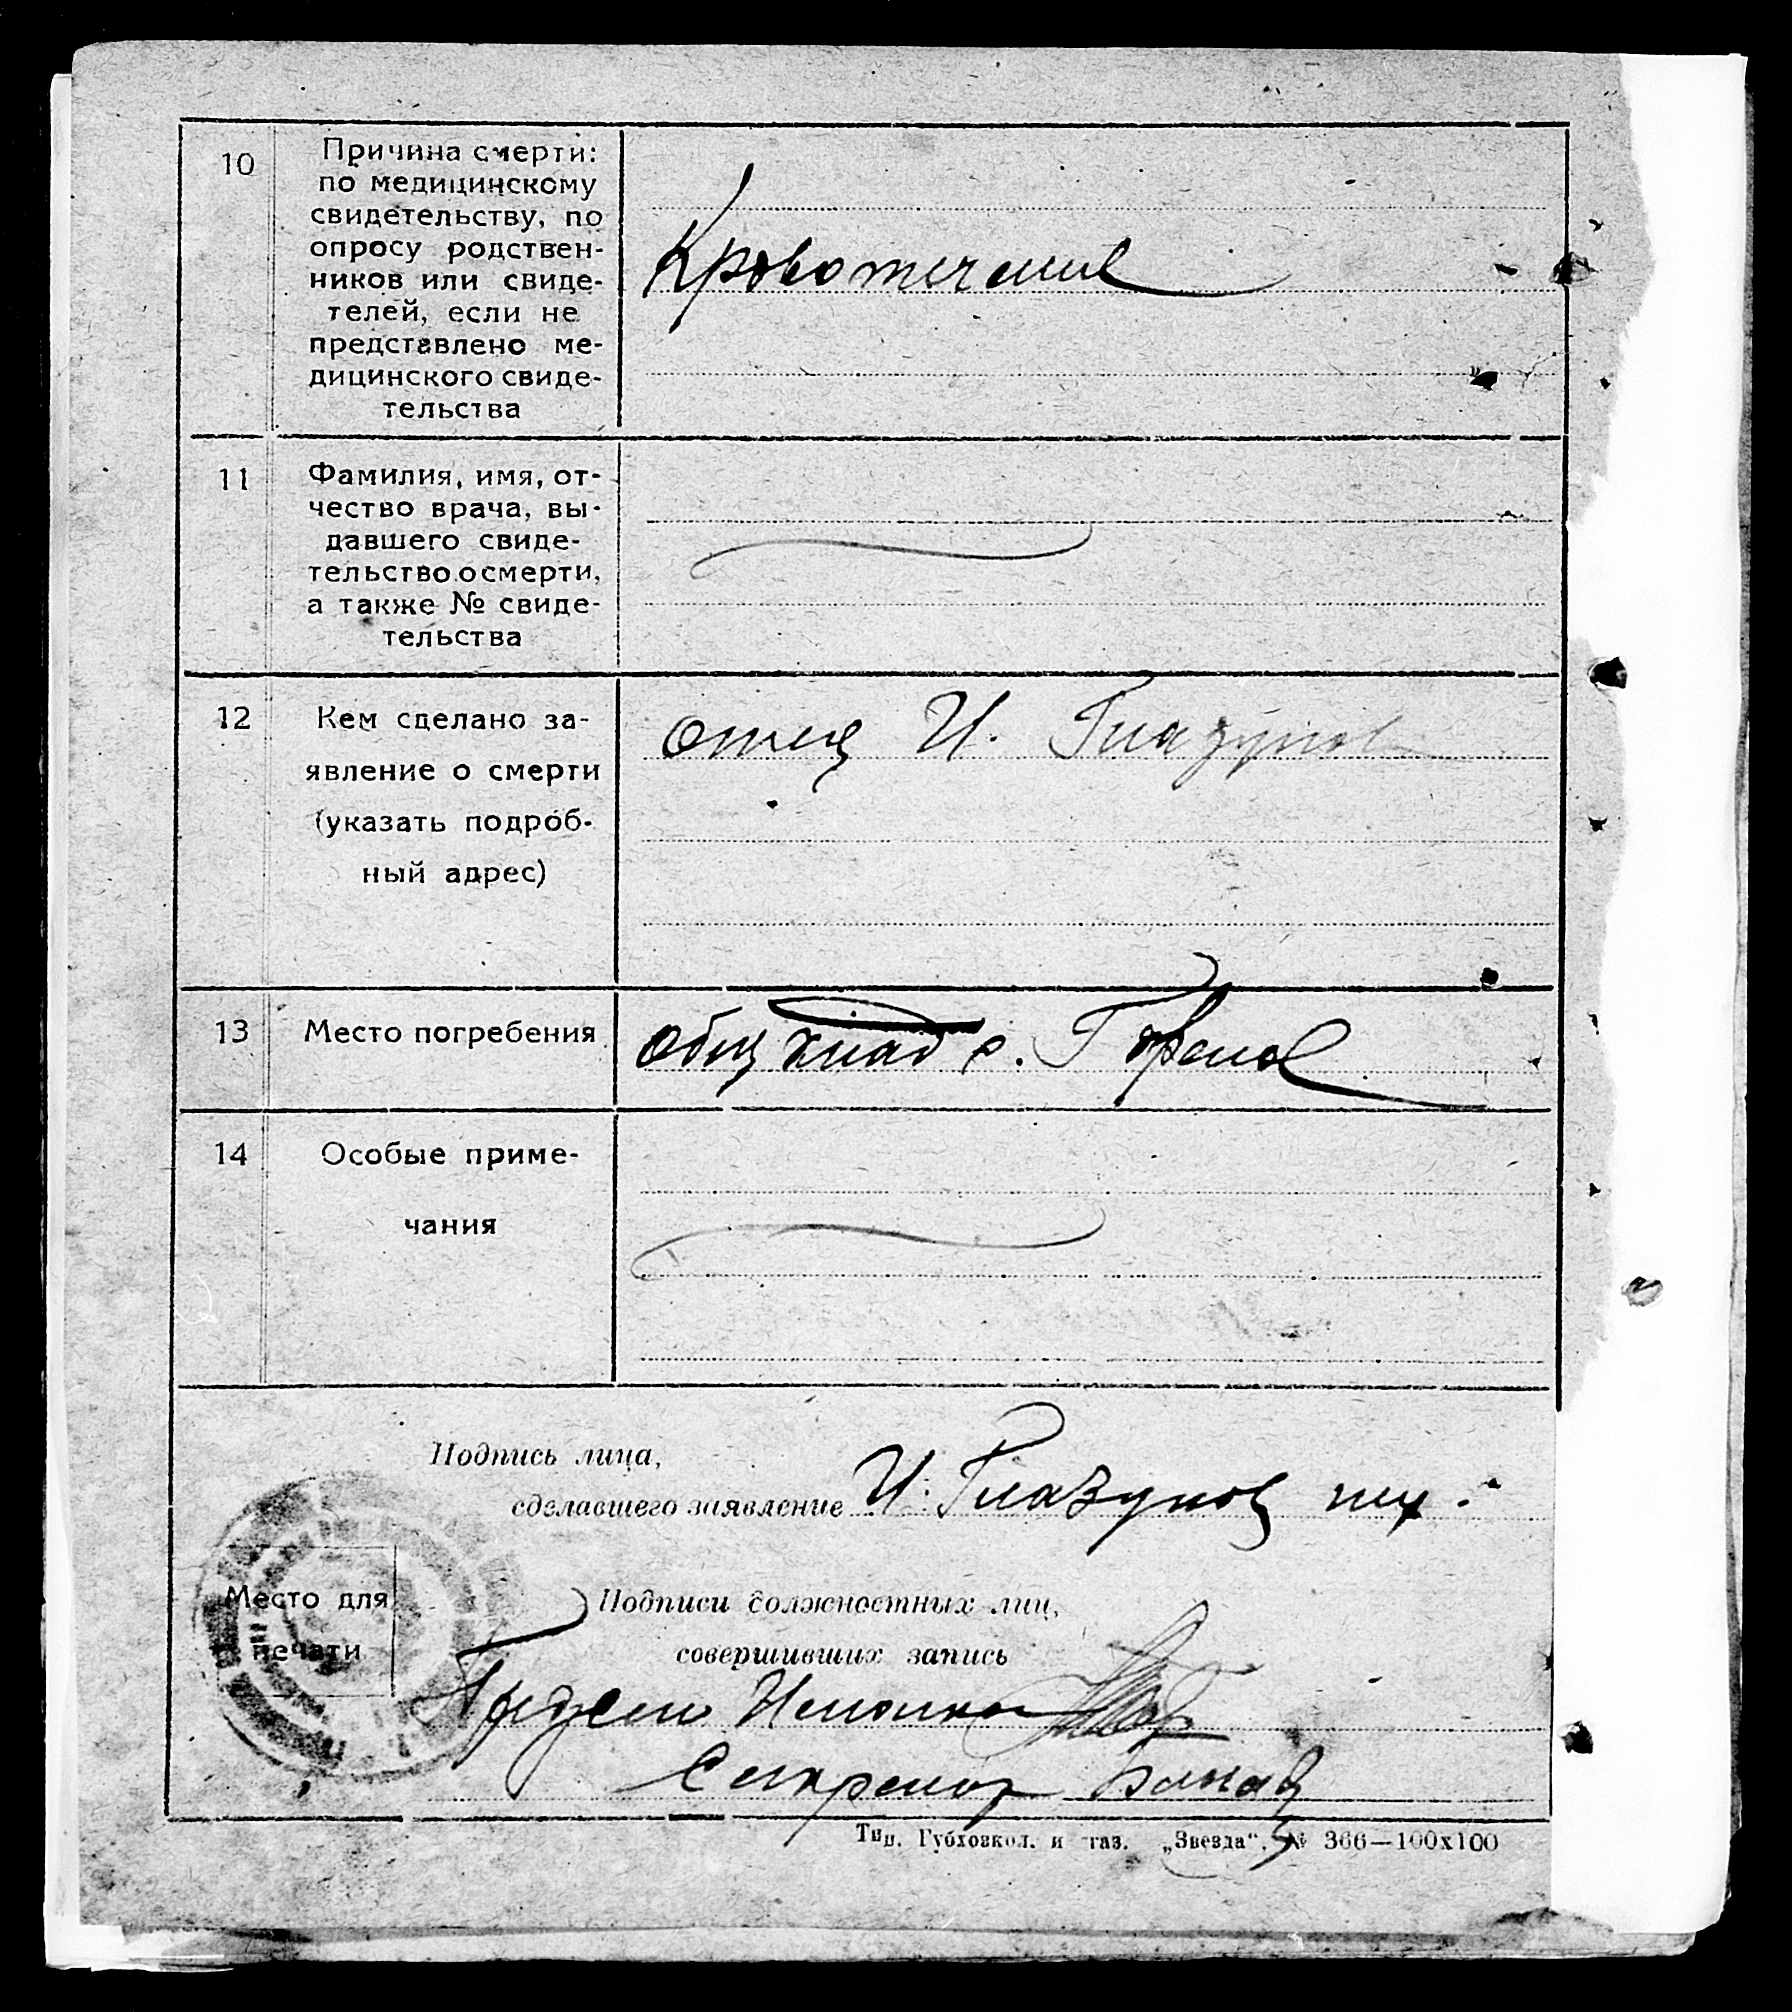 10
Причина смерти:
по медицинскому
свидетельству, по
опросу родствен-
ников или свиде-
телей, если не
представлено ме-
дицинского свиде-
тельства
Кровотечение
11
Фамилия, имя, от-
чество врача, вы-
давшего свиде-
тельство о смерти,
а также № свиде-
тельства
12
Кем сделано за-
явление о смерти
(указать подроб-
ный адрес)
отец И. Глазунов
13
Место погребения
общ клад с.
14
Особые приме-
чания
Подпись лица,
сделавшего заявление И. Глазунов
Место для
печати
Подписи должностных лиц,
совершивших запись
Секретар
Тип. Губхозкол. и газ. „Звезда“, № 366—100х100